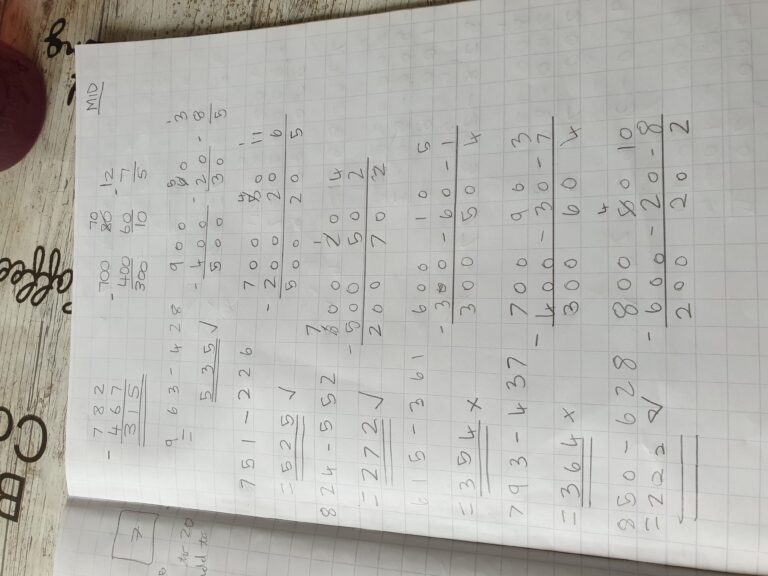 MID
782 700 70 80 12
- 467 - 400 60 - 7
315 300 10 5
963 - 428 900 5 60 1 3
= - 400 - 20 - 8
535 ✓ 500 30 5
751 - 226 700 4 50 1 11
- 200 20 6
= 525 ✓ 500 20 5
824 - 552 7 800 1 20 4
- 500 50 2
= 272 ✓ 200 70 2
615 - 361 600 10 5
- 300 - 60 - 1
= 354 × 300 50 4
793 - 437 700 90 3
- 400 - 30 - 7
= 364 × 300 60 4
850 - 628 800 4 50 10
- 600 - 20 - 8
= 222 ✓ 200 20 2
to 20
add to
coffee